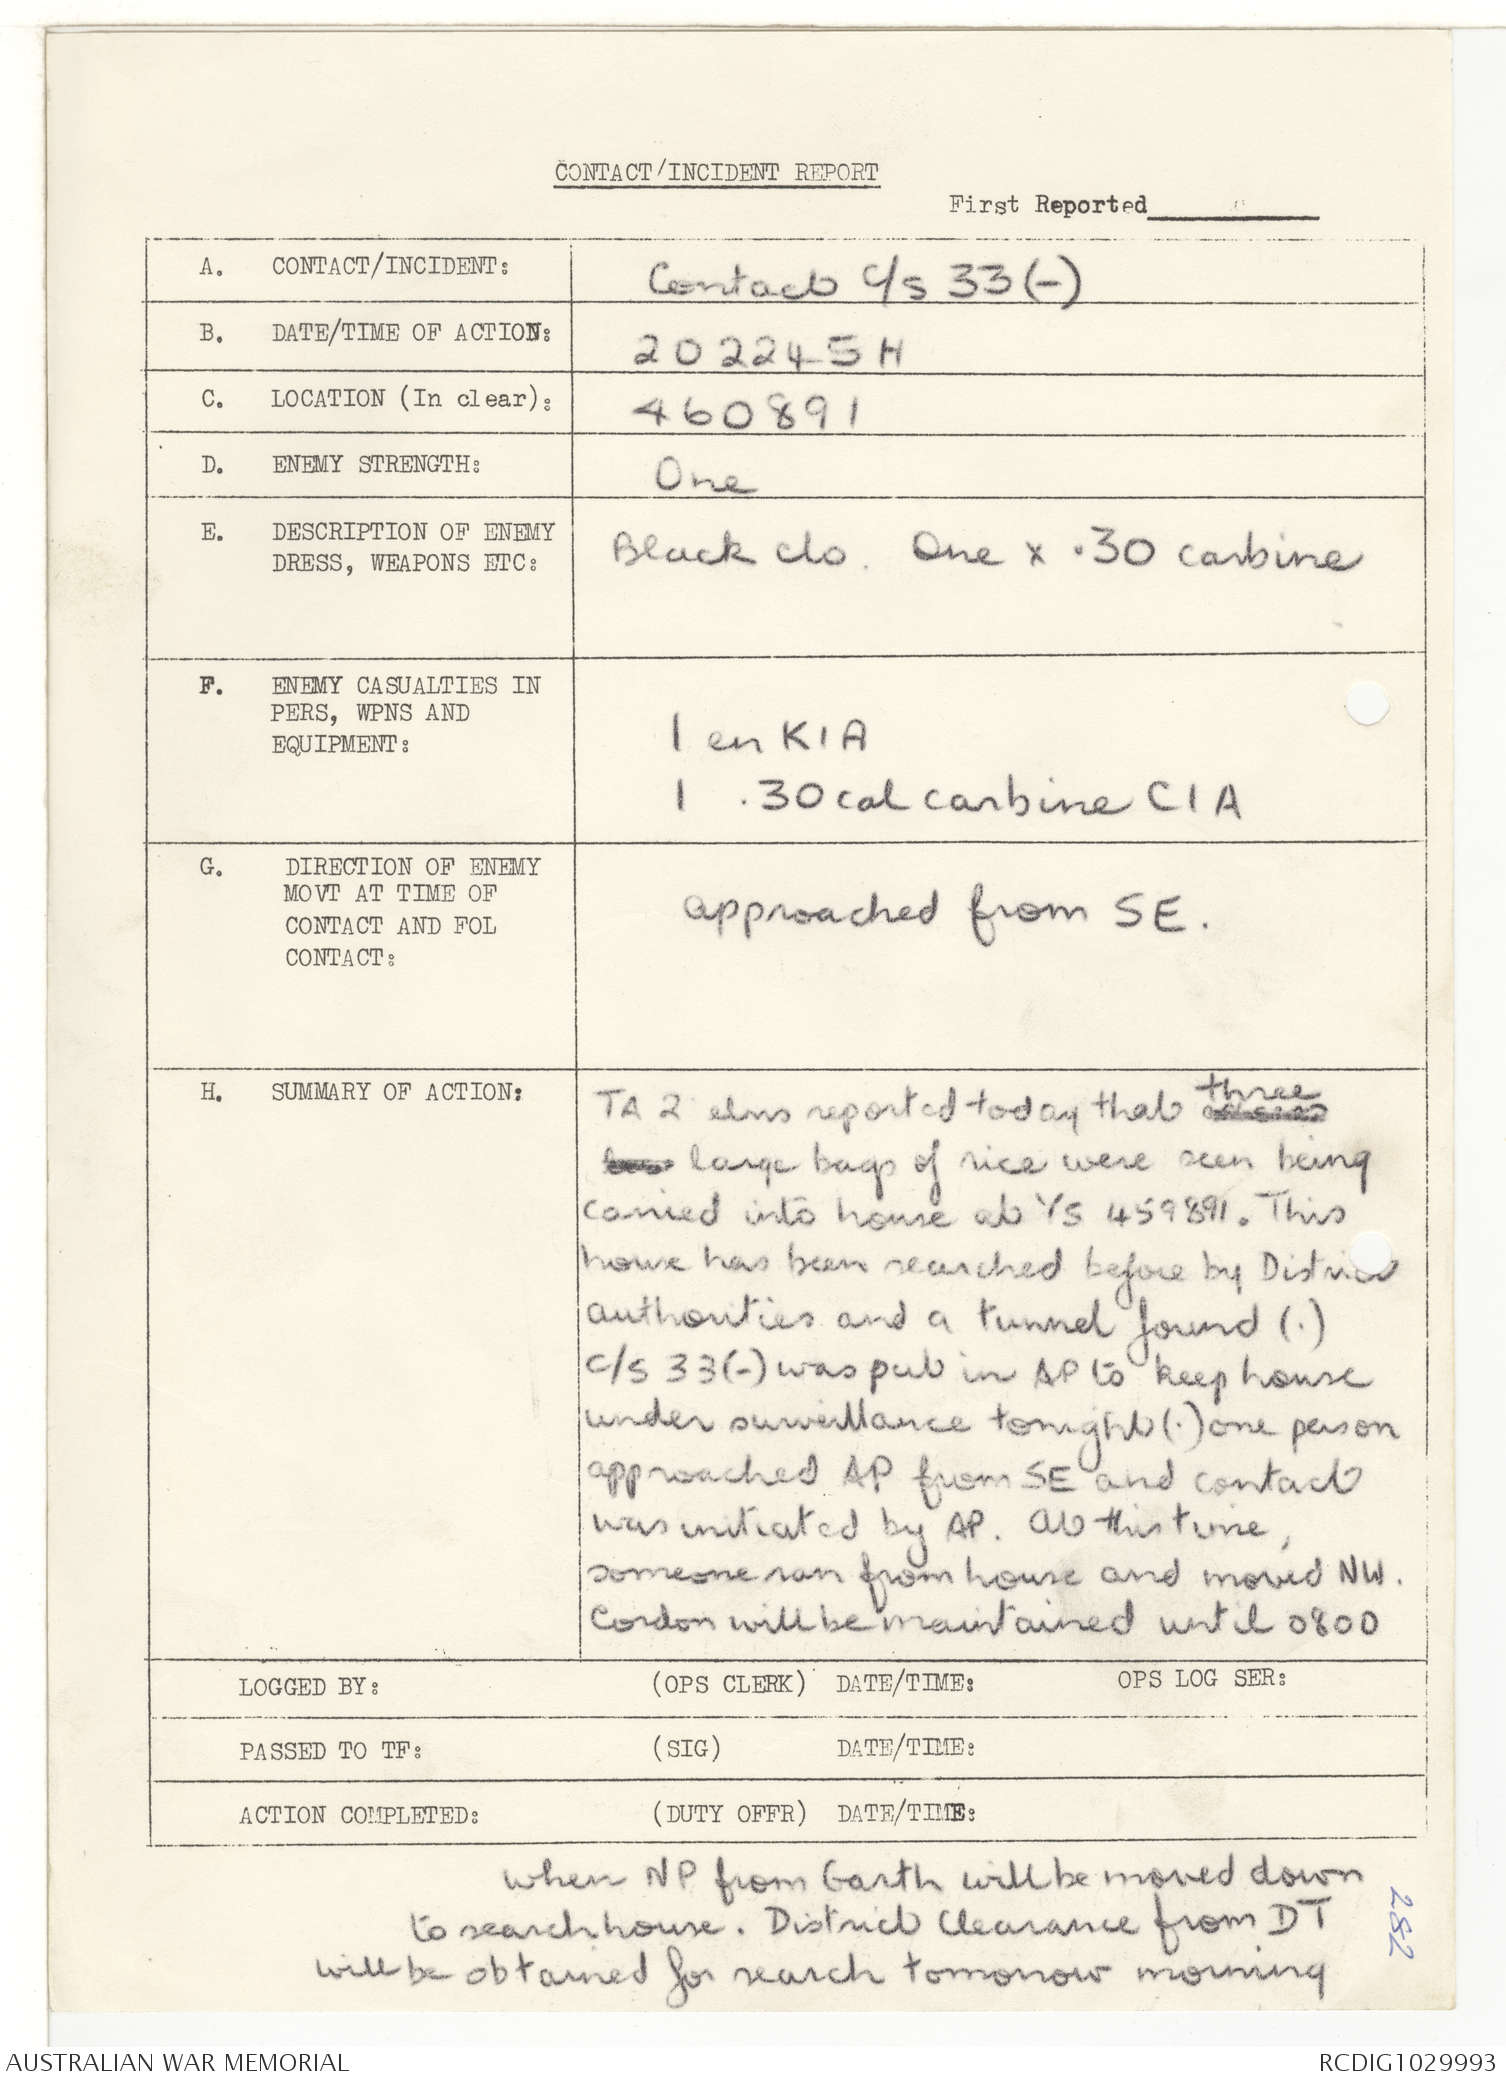 CONTACT/INCIDENT REPORT
First Reported
A. CONTACT/INCIDENT: Contact C/S 33(-)
B. DATE/TIME OF ACTION: 202245H
C. LOCATION (In clear): 460891
D. ENEMY STRENGTH: One
E. DESCRIPTION OF ENEMY
DRESS, WEAPONS ETC: Black clo. One x .30 carbine
F. ENEMY CASUALTIES IN
PERS, WPNS AND
EQUIPMENT:
1 en KIA
1 .30 cal carbine CIA
G. DIRECTION OF ENEMY
MOVT AT TIME OF
CONTACT AND FOL
CONTACT:
approached from SE.
H. SUMMARY OF ACTION:
TA 2 elms reported today that three
large bags of rice were seen being
carried into house at YS 459891. This
house has been searched before by District
authorities and a tunnel found (.)
C/S 33(-) was put in AP to keep house
under surveillance tonight (.) one person
approached AP from SE and contact
was initiated by AP. At this time,
someone ran from house and moved NW.
Cordon will be maintained until 0800
LOGGED BY: (OPS CLERK) DATE/TIME: OPS LOG SER:
PASSED TO TF: (SIG) DATE/TIME:
ACTION COMPLETED: (DUTY OFFR) DATE/TIME:
when NP from Garth will be moved down
to search house. District Clearance from DT
will be obtained for search tomorrow morning
282
AUSTRALIAN WAR MEMORIAL
RCDIG1029993